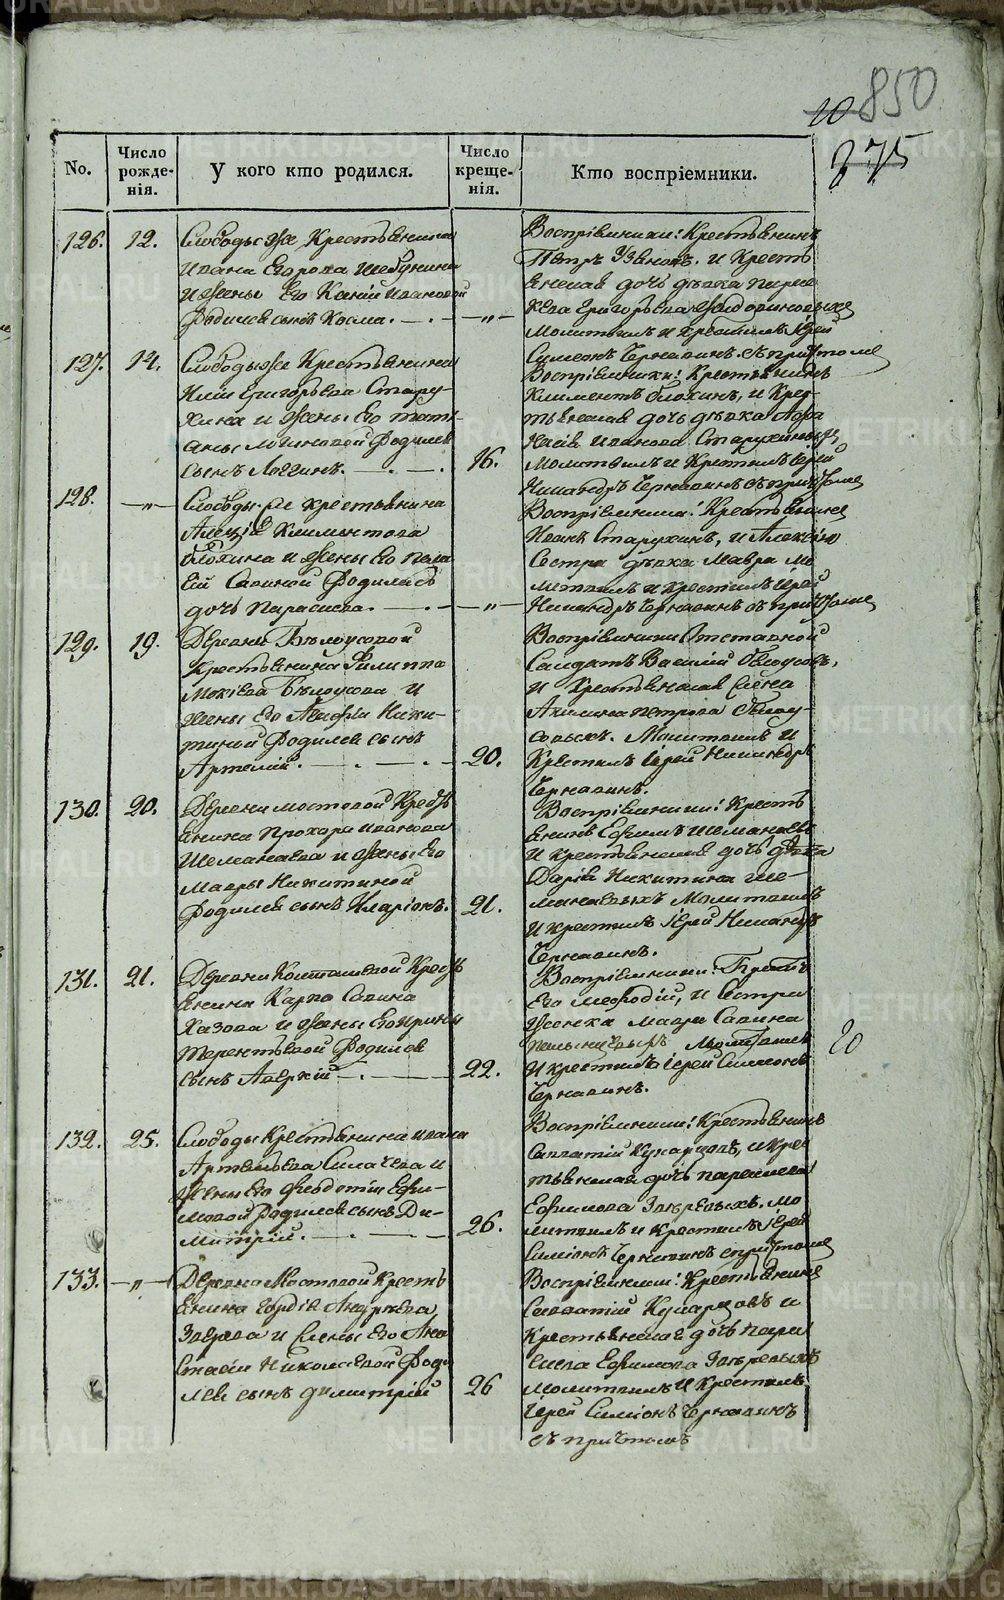 850
10
275
No.
Число рожде-нія.
У кого кто родился.
Число креще-нія.
Кто воспріемники.
126. 12.
Слободы же Крестьянина
Ивана Егорова
и жены Его Ксеніи Ивановой
Родился сынъ Косма. — „ —
Воспріемники: Крестьянинъ
Петръ и Кресть
янская дочь девка Параскева
Григорьева
Молитвилъ и крестилъ Іерей
Симеонъ Чернавинъ съ причтомъ
127. 14.
Слободы же Крестьянина
Иліи Григорьева Стару-
хина и жены Его Тать-
яны Логиновой Родился
сынъ Логгинъ. 16.
Воспріемники: Крестьянинъ
Климентъ Блохинъ, и Крес-
тьянская дочь девка Афа
насія Иванова Старухиныхъ
Молитвилъ и Крестилъ Іерей
Никандръ Чернавинъ съ причтомъ
128. — „ —
Слободы же крестьянина
Алексія Климентова
Блохина и жены Его Пела
геи Савиной Родилась
дочь Параскева. — „ —
Воспріемники: Крестьянинъ
Иванъ Старухинъ, и Алексія
Сестра девка Мавра Мо
литвилъ и крестилъ Іерей
Никандръ Чернавинъ съ причтомъ
129. 19.
Деревни Бѣлоусовой
Крестьянина Филиппа
Мокіева Бѣлоусова и
жены Его Ники-
тиной Родился сынъ
Артемій. 20.
Воспріемники Отставной
Салдатъ Василій Бѣлоусовъ,
и Крестьянская жена
Акилина Петрова Бѣлоу-
совыхъ. Молитвилъ и
Крестилъ Іерей Никандръ
Чернавинъ.
130. 20.
Деревни Мостовой Кресть
янина Прохора Иванова
Шеманаева и жены Его
Мавры Никитиной
Родился сынъ Иларіонъ. 21.
Воспріемники: Кресть
янинъ Ефимъ Шеманаевъ
и крестьянская дочь девка
Дарія Никитина Ше-
манаевыхъ Молитвилъ
и крестилъ Іерей Никандръ
Чернавинъ.
131. 21.
Деревни Кресть
янина Карпа Савина
Хазова и жены Его Ирины
Терентьевой Родился
сынъ Аверкій 22.
Воспріемники: Братъ
Его Мефодій, и Сестра
Мавра Савина
Молитвилъ
и крестилъ Іерей Симеонъ
Чернавинъ.
20
132. 25.
Слободы Крестьянина Ивана
Артемьева Силачева и
жены Его Феодотіи Ефи-
мовой Родился сынъ Ди-
митрій. 26.
Воспріемники: Крестьянинъ
Савватій и Крес
тьянская дочь Параскева
Ефимова Звѣревыхъ. Мо
литвилъ и крестилъ Іерей
Симіонъ Чернавинъ съ причтомъ
133. — „ —
Деревни Мостовой Кресть
янина Андрѣева
Звѣрева и жены Его Ана
стасіи Николаевой Роди
лся сынъ Димитрій 26
Воспріемники: Крестьянинъ
Савватій и
Крестьянская дочь Пара
скева Ефимова Звѣревыхъ
молитвилъ и крестилъ
Іерей Симіонъ Чернавинъ
съ причтомъ
METRIKI.GASU-URAL.RU